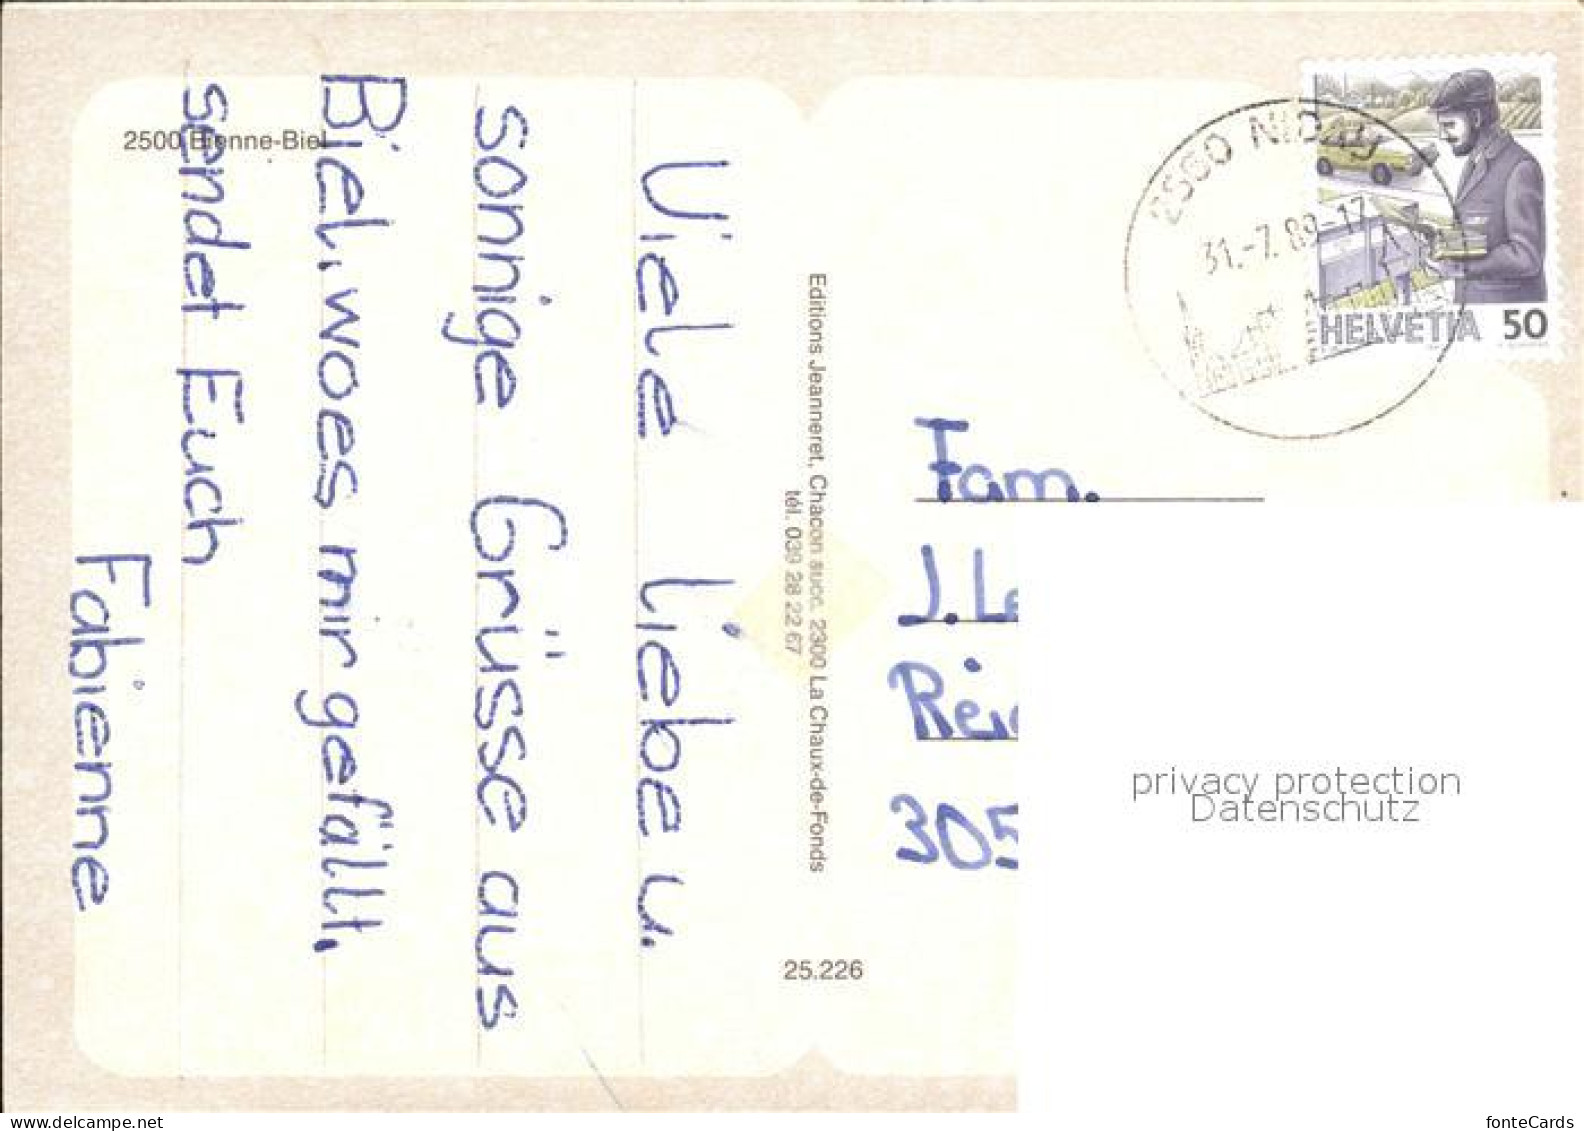 2500 Bienne-Biel
Viele liebe u.
sonnige Grüsse aus
Biel, wo es mir gefällt,
sendet Euch
Fabienne
Editions Jeanneret, Chacon succ. 2300 La Chaux-de-Fonds
tél. 039 28 22 67
25.226
2560 NIDAU
31.-7.89-17
HELVETIA 50
Fam.
J. Le
Rei
305
privacy protection
Datenschutz
fonteCards